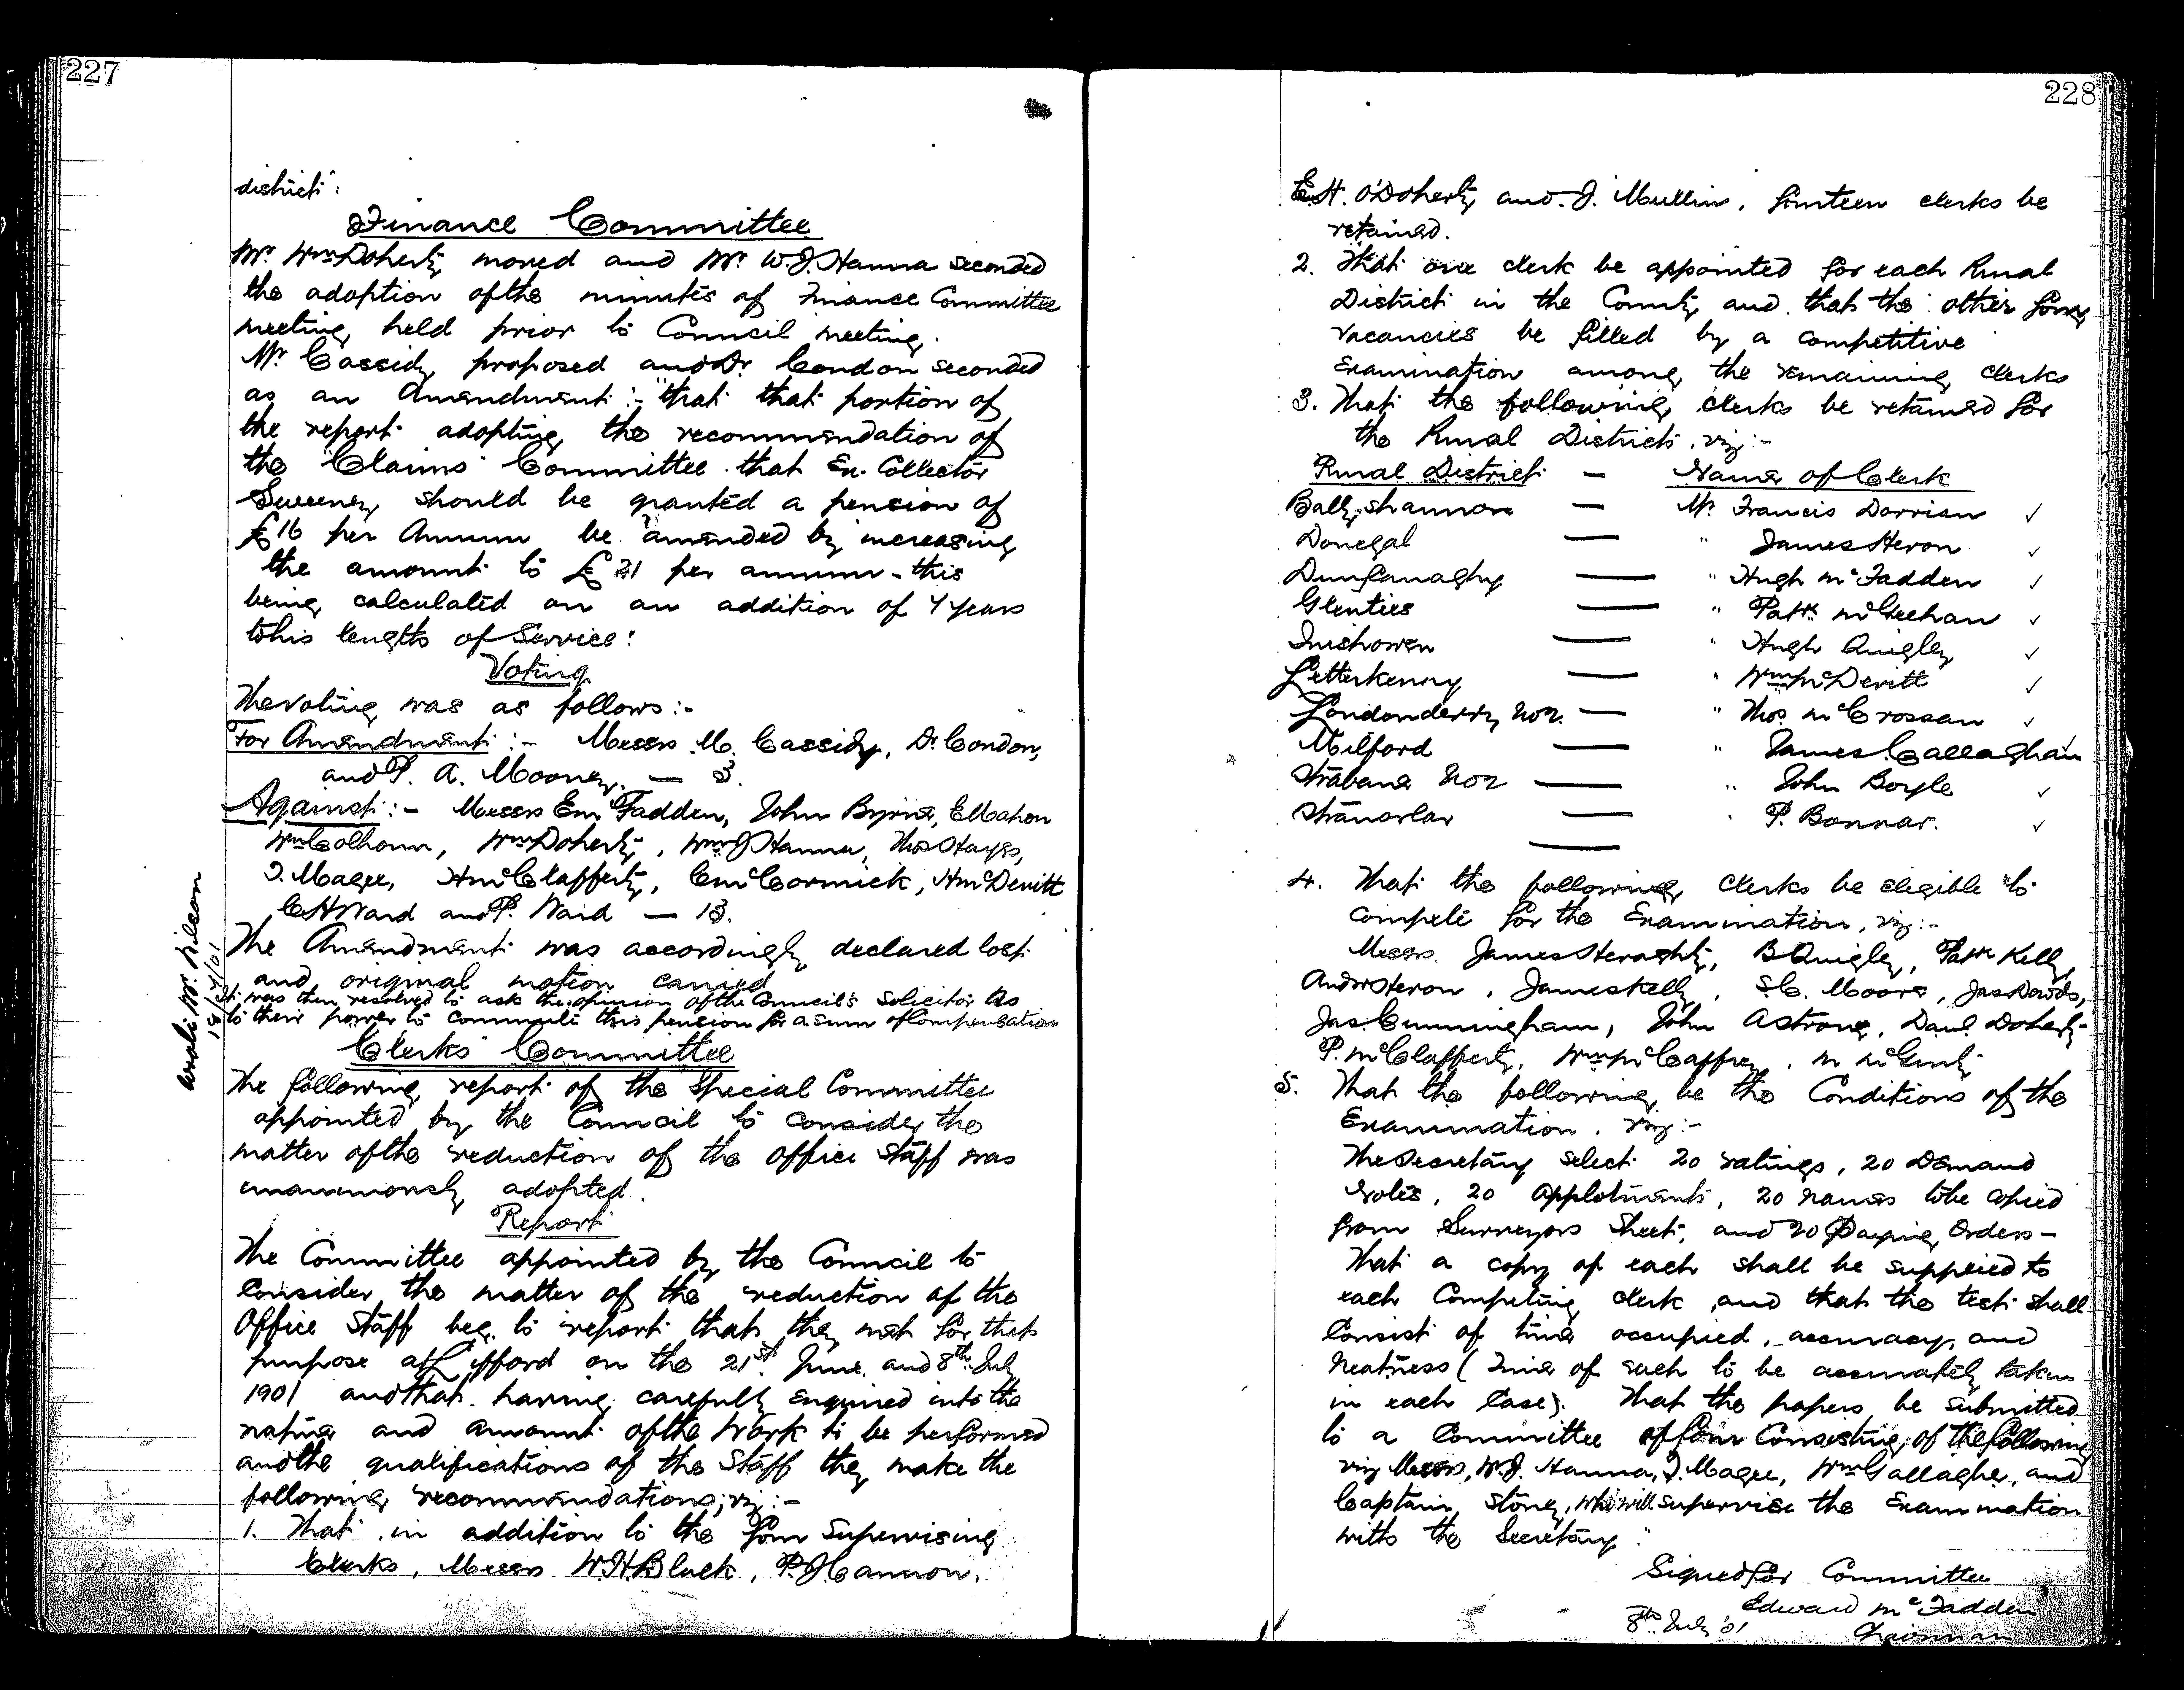 227
district".
Finance Committee
Mr. Wm Doherty moved and Mr. W.J. Hanna seconded
the adoption of the minutes of Finance Committee
meeting held prior to Council meeting.
Mr. Cassidy proposed and Dr. Condon seconded
as an Amendment :- "that that portion of
the report adopting the recommendation of
the "Claims" Committee that Ex. Collector
Sweeney should be granted a pension of
£16 per Annum be amended by increasing
the amount to £21 per annum - this
being calculated on an addition of 4 years
to his length of Service:
Voting
The voting was as follows :-
For Amendment :- Messrs M. Cassidy, Dr. Condon,
and P. A. Mooney. — 3.
Against :- Messrs E McFadden, John Byrne, E Mahon
Wm Colhoun, Wm Doherty, Wm J Hanna, Thos Hayes,
J. Magee, H McClafferty, C McCormick, H McDevitt
C H Ward and P. Ward — 13.
The Amendment was accordingly declared lost
and original motion carried
It was then resolved to ask the opinion of the Council's Solicitor as
to their power to commute this pension for a sum of Compensation
Mr. Wilson
18/7/01
Clerks' Committee
The following report of the Special Committee
appointed by the Council to consider the
matter of the reduction of the office staff was
unanimously adopted.
Report
The Committee appointed by the Council to
Consider the matter of the reduction of the
Office Staff beg to report that they met for that
purpose at Lifford on the 21st June and 8th July
1901 and that having carefully enquired into the
nature and amount of the Work to be performed
and the qualifications of the Staff they make the
following recommendations; viz :-
1. That in addition to the four Supervising
Clerks, Messrs W.H. Black, P.J. Cannon,
228
E.H. O'Doherty and J. Mullin, fourteen clerks be
retained.
2. That one clerk be appointed for each Rural
District in the County and that the other four
vacancies be filled by a competitive
Examination among the remaining clerks
3. That the following clerks be retained for
the Rural Districts, viz :-
Rural District — Name of Clerk
Ballyshannon — Mr. Francis Dorrian ✓
Donegal — " James Heron ✓
Dunfanaghy — " Hugh McFadden ✓
Glenties — " Patk McGeehan ✓
Inishowen — " Hugh Quigley ✓
Letterkenny — " Wm McDevitt ✓
Londonderry No 2. — " Thos. McCrossan ✓
Milford — " James Callaghan ✓
Strabane No 2 — " John Boyle ✓
Stranorlar — " P. Bonnar. ✓
4. That the following clerks be eligible to
compete for the Examination, viz :-
Messrs. James Heraghty, B Quigley, Patk Kelly,
Andw Heron, James Kelly, S.C. Moore, Jas Davids,
Jas. Cunningham, John A Strong, Danl. Doherty
P. McClafferty, Wm McCaffrey, M McGinty
5. That the following be the Conditions of the
Examination, viz :-
The Secretary select 20 ratings, 20 Demand
Notes, 20 Applotments, 20 names to be copied
from Surveyors Sheet, and 20 Paying Orders —
That a copy of each shall be supplied to
each Competing clerk, and that the test shall
Consist of time occupied, accuracy, and
neatness (Time of each to be accurately taken
in each Case). That the papers be submitted
to a Committee of four Consisting of the following
viz Messrs, W.J. Hanna, J. Magee, Wm Gallagher, and
Captain Stoney, who will supervise the Examination
with the Secretary."
Signed for Committee
Edward McFadden
8th July '01 Chairman